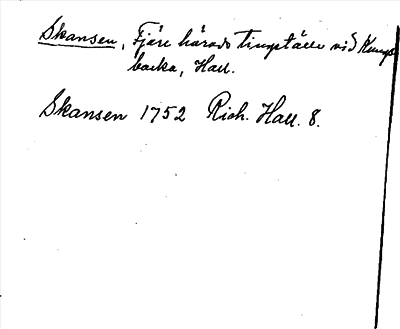 Skansen, Fjäre härads tingställe vid Kungs
backa, Hall.
Skansen 1752 Rich. Hall. 8.